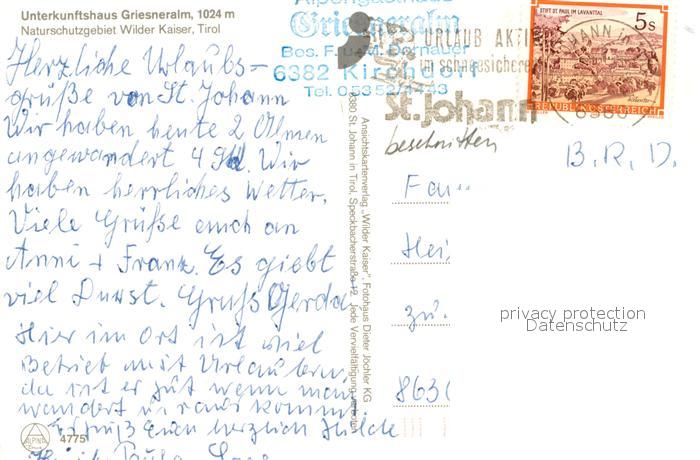 Unterkunftshaus Griesneralm, 1024 m
Naturschutzgebiet Wilder Kaiser, Tirol
Alpengasthaus
Griesneralm
Bes. F. u. M. Dornauer
6382 Kirchdorf
Tel. 0 53 52/4443
URLAUB AKTIV
im schneesicheren
St. Johann
STIFT ST. PAUL IM LAVANTTAL
5s
REPUBLIK ÖSTERREICH
Herzliche Urlaubs-
grüße von St. Johann
Wir haben heute 2 Almen
angewandert 4 Std. Wir
haben herrliches Wetter.
Viele Grüße auch an
Anni + Frank. Es giebt
viel Durst. Gruß Gerda
Hier im Ort ist viel
Betrieb mit Urlaubern,
da ist es gut wenn man
wandert u. raus kommt.
Es grüßt Euch herzlich Hilde
4775
ALPINE
Ansichtskartenverlag „Wilder Kaiser", Fotohaus Dieter Jöchler KG
6380 St. Johann in Tirol, Speckbacherstraße 12. Jede Vervielfältigung verboten
beschnitten
B. R. D.
Fam.
Hei
zu.
8630
privacy protection
Datenschutz